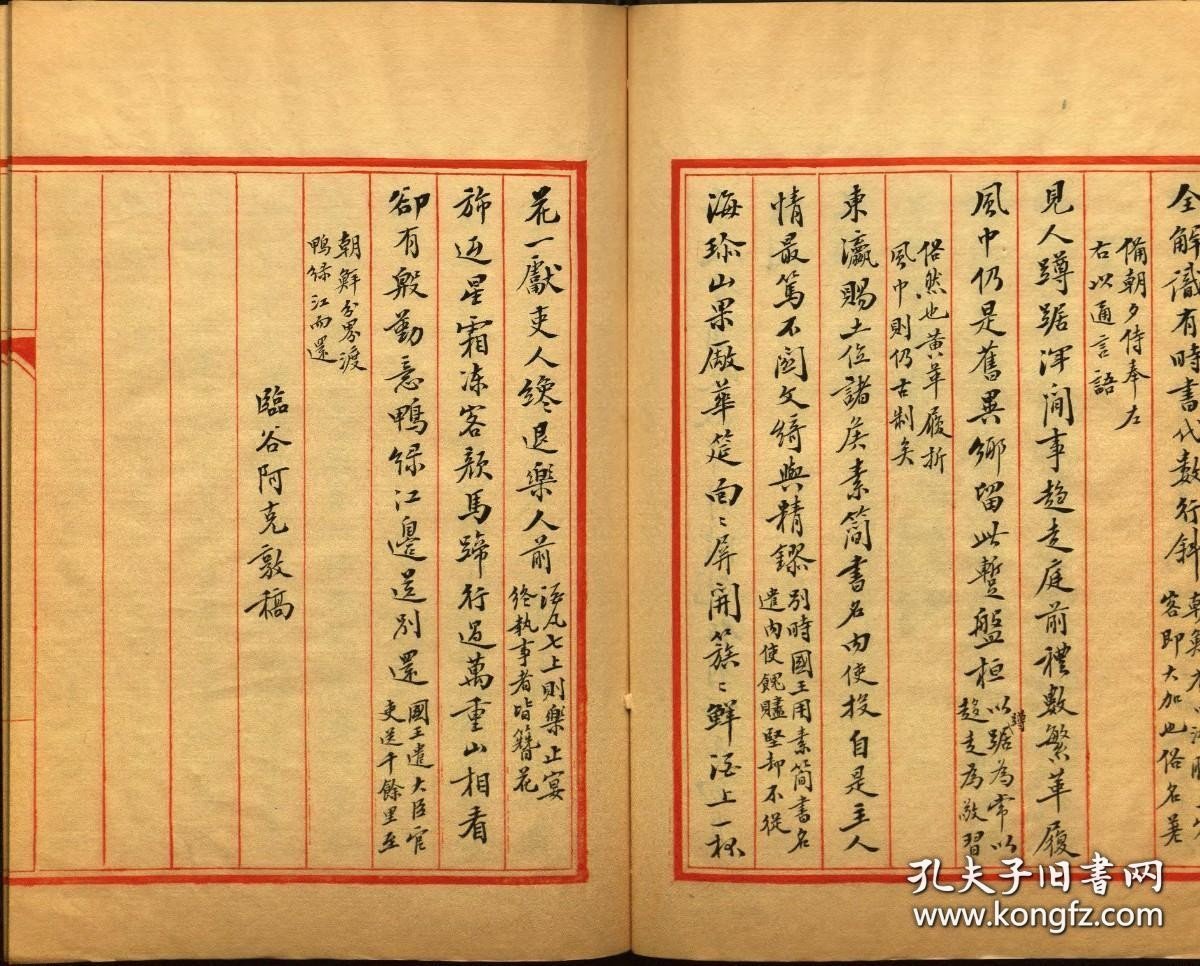 全解識有時書代數行斜
客即大加也俗名差
備朝夕侍奉左
右以通言語
見人蹲踞渾閒事趨走庭前禮數繁革履
風中仍是舊異鄉留此暫盤桓以蹲踞為常以
趨走為敬習
俗然也黃草履折
風巾則仍古制矣
東瀛賜土位諸侯素簡書名內使投自是主人
情最篤不関文綺與精鏐別時國王用素簡書名
遣內使餽贐堅却不從
海珍山果廠華筵向〻屏開簇〻鮮酒上一杯
花一獻吏人纔退樂人前酒凡七上則樂止宴
終執事者皆簪花
旆迎星霜凍客顏馬蹄行過萬重山相看
卻有殷勤意鴨綠江邊送別還國王遣大臣官
吏送千餘里至
朝鮮分界渡
鴨綠江而還
臨谷阿克敦稿
孔夫子旧书网
www.kongfz.com